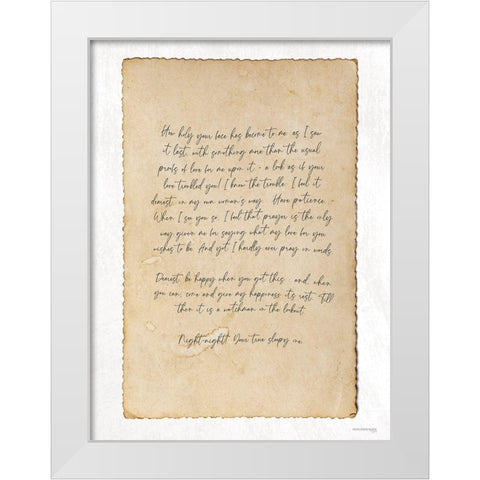 How holy your face has become to me as I saw
it last, with something more than the usual
proofs of love for me upon it - a look as if your
love troubled you! I know the trouble I feel it
dearest in my own woman's way. Have patience. -
When I see you so, I feel that prayer is the only
way given me for saying what my love for you
wishes to be. And yet I hardly ever pray in words.
Dearest be happy when you get this and, when
you can, come and give my happiness its rest. Till
then it is a watchman on the lookout.
Night-night! Your true sleepy one.